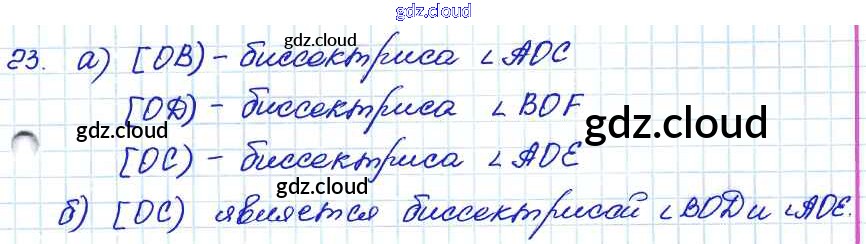 gdz.cloud
23. а) [OB) - биссектриса ∠AOC
gdz.cloud
[OD) - биссектриса ∠BOF
gdz.cloud
gdz.cloud
[OC) - биссектриса ∠AOE
gdz.cloud
б) [OC) является биссектрисой ∠BOD и ∠AOE.
gdz.cloud